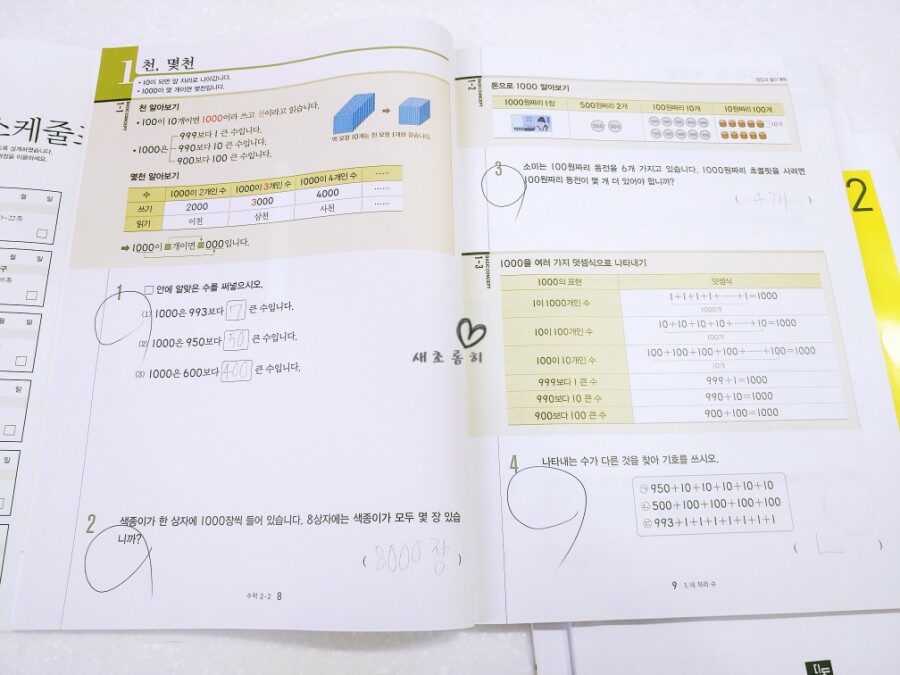 스케줄
록 설계하였습니다.
월 일
0~22쪽
월 일
월 일
월 일
월 일
1
천, 몇천
• 10이 되면 앞 자리로 나아갑니다.
• 1000이 몇 개이면 몇천입니다.
BASIC CONCEPT
1-1
천 알아보기
• 100이 10개이면 1000이라 쓰고 천이라고 읽습니다.
• 1000은
999보다 1 큰 수입니다.
990보다 10 큰 수입니다.
900보다 100 큰 수입니다.
백 모형 10개는 천 모형 1개와 같습니다.
몇천 알아보기
수 1000이 2개인 수 1000이 3개인 수 1000이 4개인 수 ……
쓰기 2000 3000 4000 ……
읽기 이천 삼천 사천
➡ 1000이 ■개이면 ■000입니다.
1
□ 안에 알맞은 수를 써넣으시오.
(1) 1000은 993보다 7 큰 수입니다.
(2) 1000은 950보다 50 큰 수입니다.
(3) 1000은 600보다 400 큰 수입니다.
2
색종이가 한 상자에 1000장씩 들어 있습니다. 8상자에는 색종이가 모두 몇 장 있습
니까?
( 8000장 )
수학 2-2 8
새초롬히
BASIC CONCEPT
1-2
돈으로 1000 알아보기
1000원짜리 1장 500원짜리 2개 100원짜리 10개 10원짜리 100개
500 500
10개
3
소미는 100원짜리 동전을 6개 가지고 있습니다. 1000원짜리 초콜릿을 사려면
100원짜리 동전이 몇 개 더 있어야 합니까?
( 4개 )
BASIC CONCEPT
1-3
1000을 여러 가지 덧셈식으로 나타내기
1000의 표현 덧셈식
1이 1000개인 수 1+1+1+1+……+1=1000
1000개
10이 100개인 수 10+10+10+10+……+10=1000
100개
100이 10개인 수 100+100+100+100+……+100=1000
10개
999보다 1 큰 수 999+1=1000
990보다 10 큰 수 990+10=1000
900보다 100 큰 수 900+100=1000
4
나타내는 수가 다른 것을 찾아 기호를 쓰시오.
㉠ 950+10+10+10+10+10
㉡ 500+100+100+100+100
㉢ 993+1+1+1+1+1+1+1
( ㄴ )
9 1. 네 자리 수
2